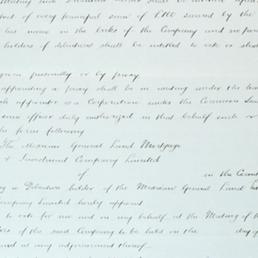 of every principal sum of £100 secured by the
last name in the books of the Company and no
holders of debentures shall be entitled to vote
given personally or by proxy
appointing a proxy shall be in writing under the
appointor is a Corporation under the Common Seal
some officer duly authorized in that behalf such
the form following
The Mexican General Land Mortgage
& Investment Company Limited
of in the County
a Debenture holder of the Mexican General Land
Company Limited hereby appoint
to vote for me and on my behalf at the Meeting of
of the said Company to be held on the day of
and at any adjournment thereof